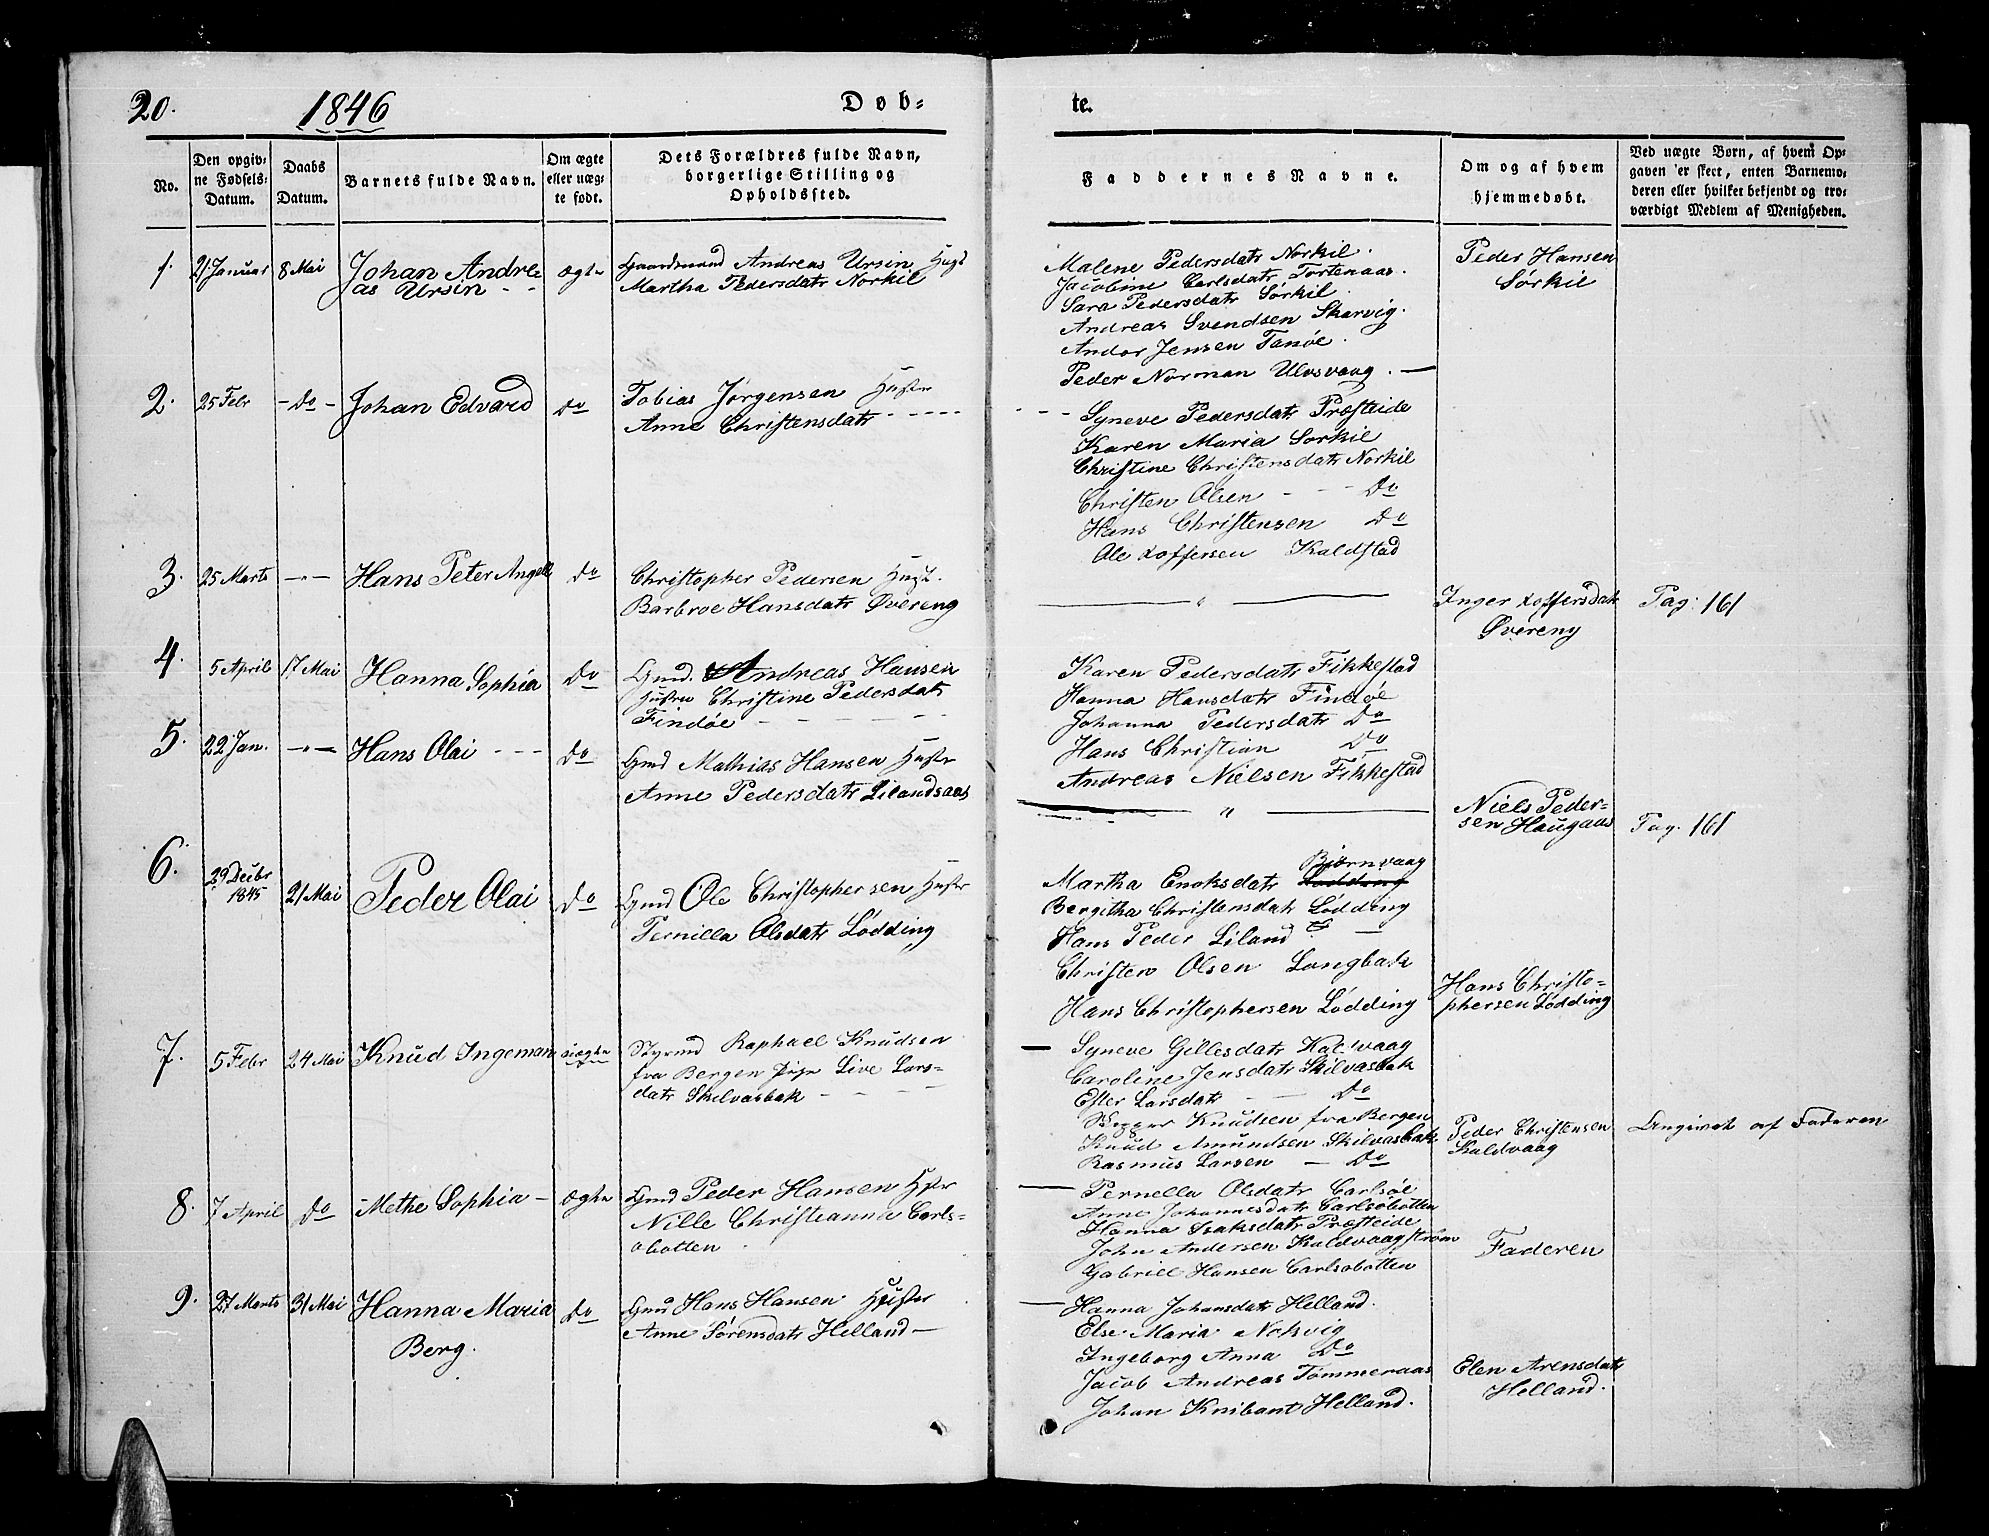 20.
1846
Døb-
te.
No.
Den opgiv-
ne Fødsels-
Datum.
Daabs
Datum.
Barnets fulde Navn.
Om ægte
eller uæg-
te født.
Dets Forældres fulde Navn,
borgerlige Stilling og
Opholdssted.
Faddernes Navne.
Om og af hvem
hjemmedøbt.
Ved uægte Børn, af hvem Op-
gaven er skeet, enten Barnemo-
deren eller hvilket bekjendt og tro-
værdigt Medlem af Menigheden.
1. 21 Januar 8 Mai Johan Andre-
as Ursin - -
ægte
Gaardmand Andreas Ursin Hust
Martha Pedersdatr Norkil
Malene Pedersdatr Norkil.
Jacobine Carlsdatr Tortenaas.
Sara Pedersdatr Sørkil.
Andreas Svendsen Skarvig.
Andor Jensen Tanøe.
Peder Norman Ulvsvaag. —
Peder Hansen
Sørkil
2. 25 Febr - Do - Johan Edvard Do
Tobias Jørgensen Hustr
Anne Christensdatr - - - - -
- - - Syneve Pedersdatr Præsteide
Karen Maria Sørkil
Christine Christensdatr Norkil
Christen Olsen - - - Do
Hans Christensen Do
Ole Xoffersen Kaldstad
3. 25 Marts —"— Hans Peter Angell Do
Christopher Pedersen Hust.
Barbroe Hansdatr Øvereng
"
Inger Xoffersdatr
Øvereng
Pag: 161
4. 5 April 17 Mai Hanna Sophia Do
Gmd. Andreas Hansen
Hustru Christine Pedersdatr
Findøe - - - -
Karen Pedersdatr Fikkestad
Hanna Hansdatr Findøe
Johanna Pedersdatr Do
Hans Christian Do
Andreas Nielsen Fikkestad
5. 22 Jan. —"— Hans Olai - - - Do
Gmd Mathias Hansen Hustr
Anne Pedersdatr Lilandsaas
"
Niels Peder-
sen Haugaas
Pag. 161
6. 29 Decbr
1845
21 Mai Peder Olai Do
Gmd Ole Christophersen Hustr
Pernilla Olsdatr Lødding
Bjørnvaag
Martha Enoksdatr Lødding
Bergitha Christensdatr Lødding
Hans Peder Liland —
Christen Olsen Langbak
Hans Christophersen Lødding
Hans Christo-
phersen Lødding
7. 5 Febr 24 Mai Knud Ingeman uægte
Styrmd Raphael Knudsen
fra Bergen Pige Live Lars-
datr Skilvasbak - - -
— Syneve Gillesdatr Kalvaag
Caroline Jensdatr Skilvasbak
Ester Larsdatr - - Do
Knudsen fra Bergen
Knud Amundsen Skilvasbak
Rasmus Larsen — Do
Peder Christensen
Kaldvaag
Angivet af Faderen
8. 7 April Do - Methe Sophia - ægte
Gmd Peder Hansen Hstr
Nille Christianna Carls-
øbotten
— Pernella Olsdatr Carlsøe
Anne Johannesdatr Carlsøbotten
Hanna Isaksdatr Præsteide
John Andersen Kaldvaagstrøm
Gabriel Hansen Carlsøbotten
Faderen
9. 27 Marts 31 Mai Hanna Maria
Berg.
Do
Gmd Hans Hansen Hustr
Anne Sørensdatr Helland —
— Hanna Johansdatr Helland.
Else Maria Nokvig
Ingeborg Anna Do
Jacob Andreas Tømmeraas
Johan Knibant Helland.
Elen Arensdatr
Helland.